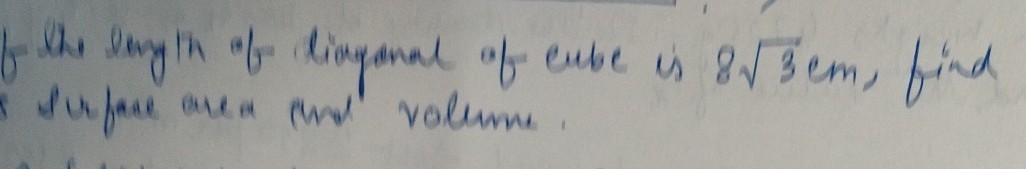 f the length of diagonal of cube is 8√3 cm, find
s surface area and volume.